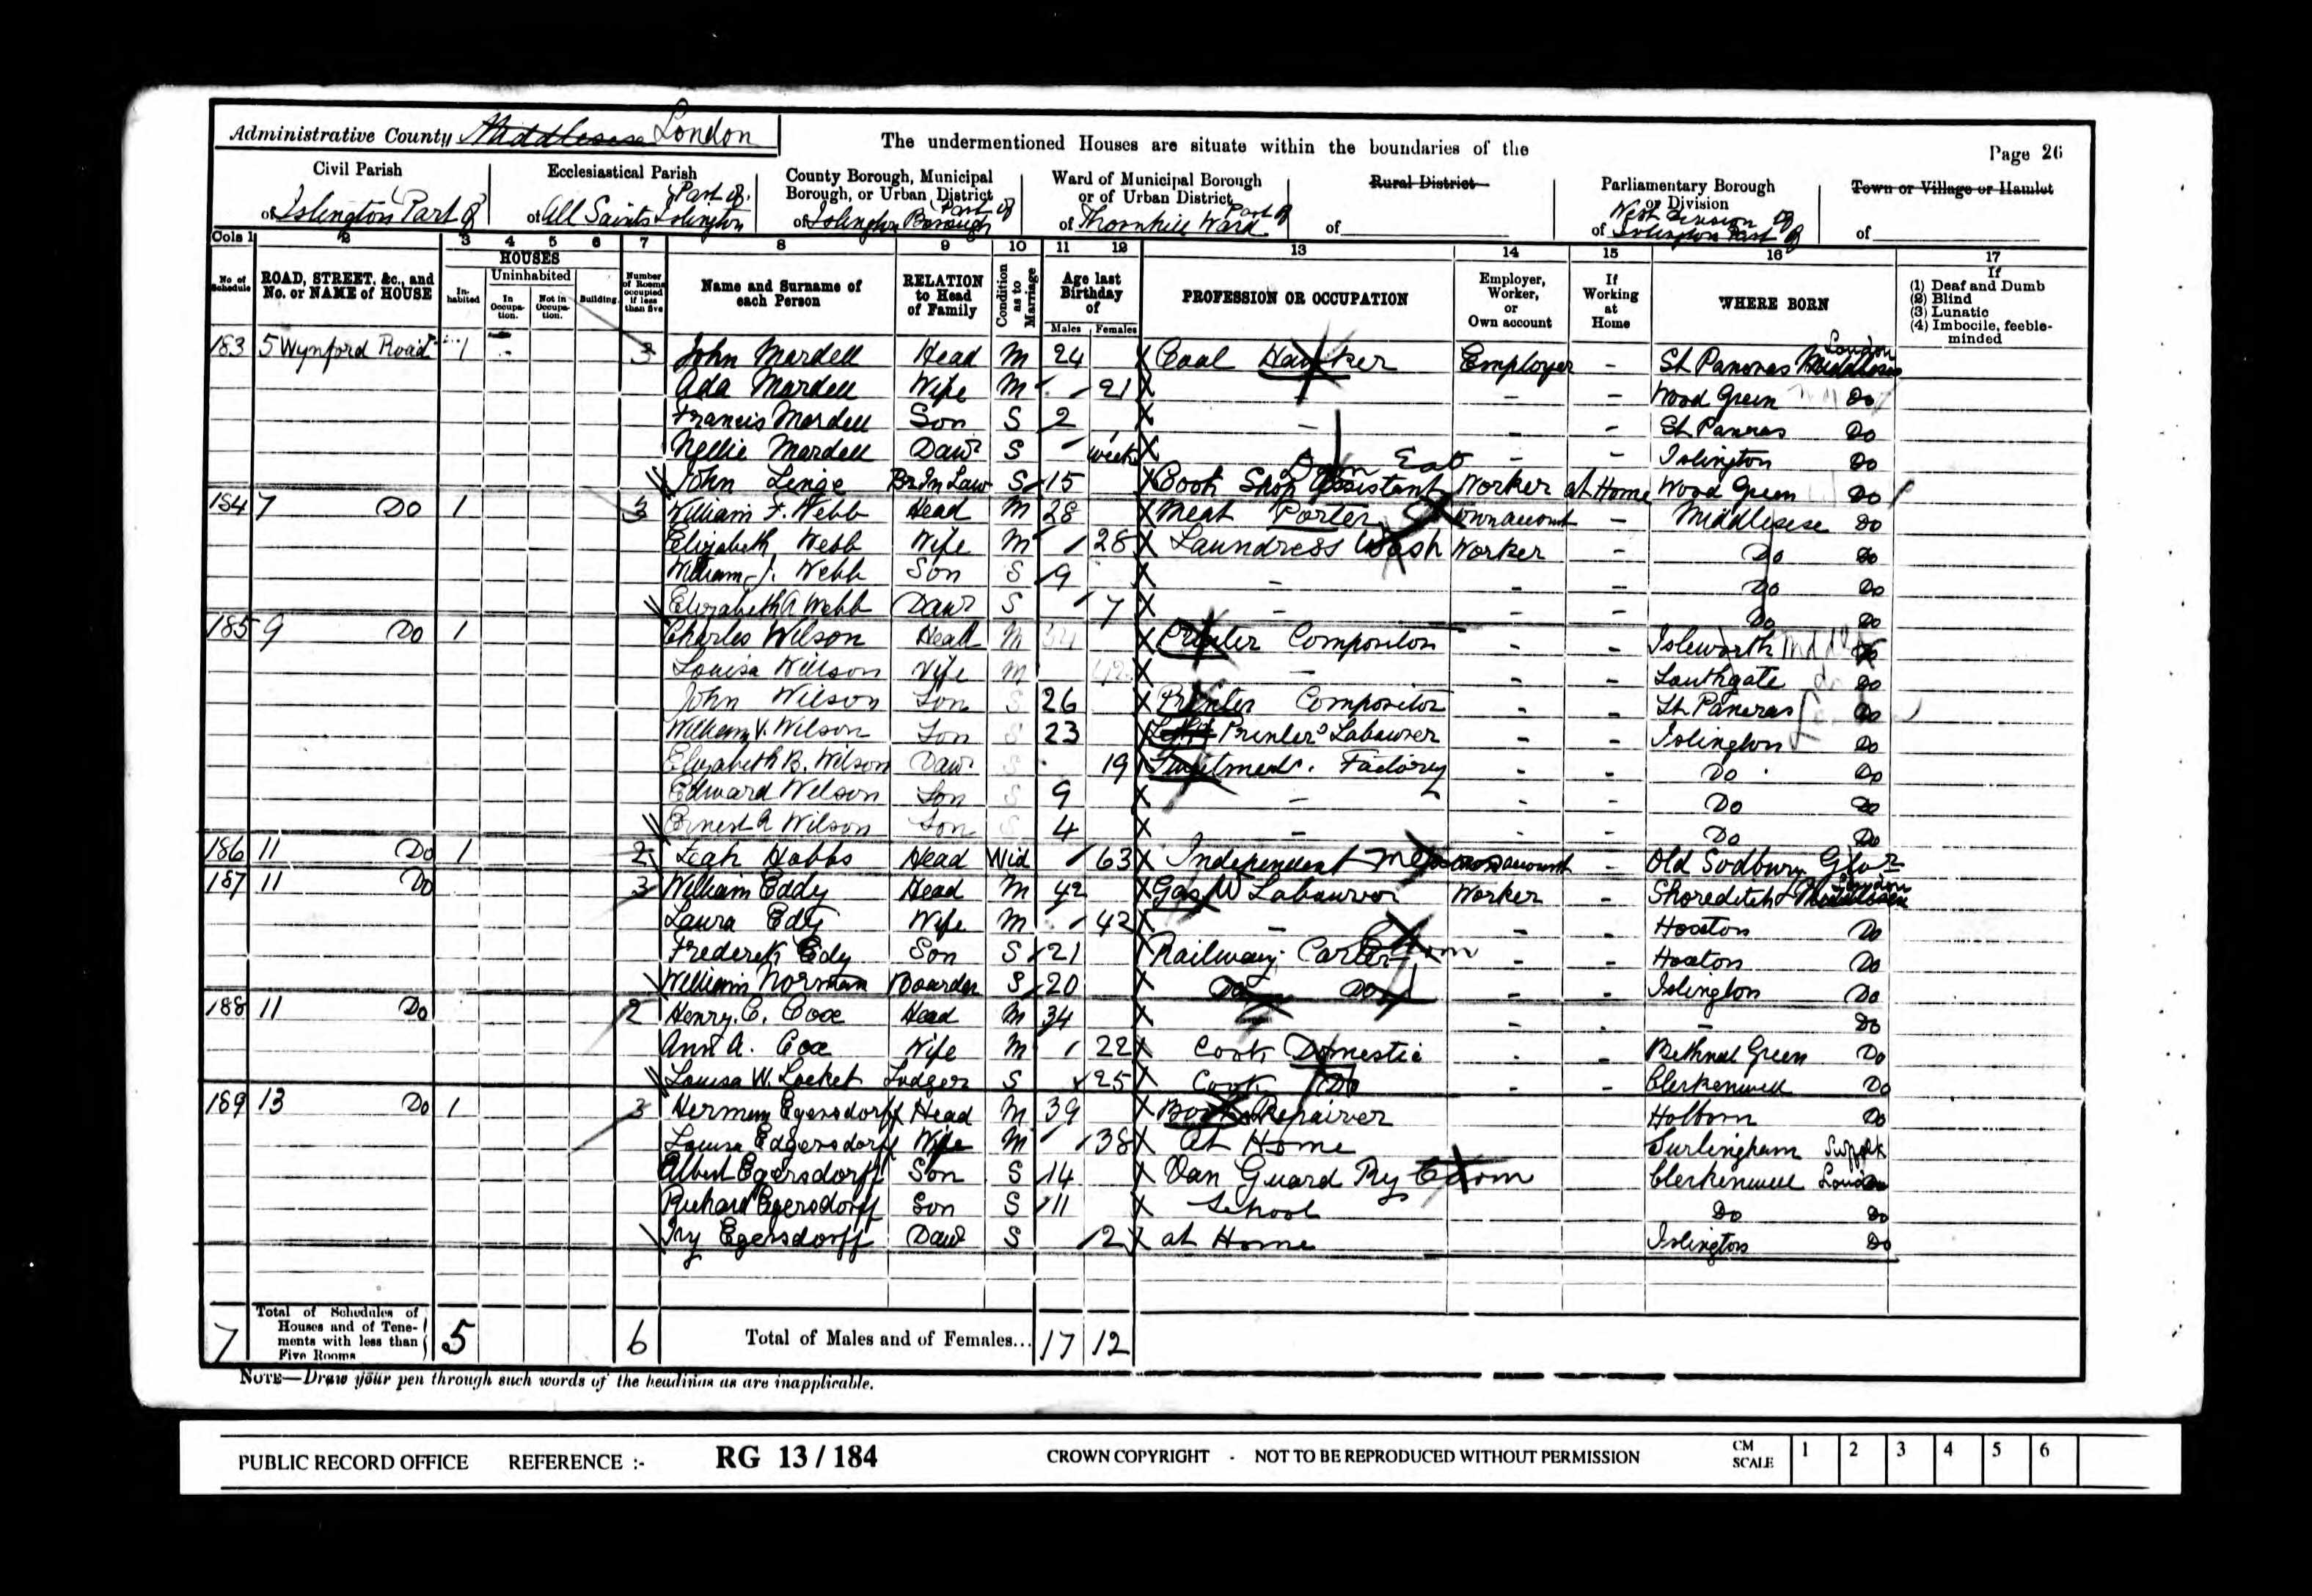 Administrative County Middlesex London
The undermentioned Houses are situate within the boundaries of the
Page 26
Civil Parish
of Islington Part of
Ecclesiastical Parish
Part of
of All Saints Islington
County Borough, Municipal
Borough, or Urban District
Part of
of Islington Borough
Ward of Municipal Borough
or of Urban District
Part of
of Thornhill Ward
Rural District
of
Parliamentary Borough
or Division
West Division of
of Islington Part of
Town or Village or Hamlet
of
Cols 1 2 3 4 5 6 7 8 9 10 11 12 13 14 15 16 17
No. of Schedule
ROAD, STREET, &c., and No. or NAME of HOUSE
HOUSES
Inhabited
Uninhabited
In Occupation.
Not in Occupation.
Building.
Number of Rooms occupied if less than five
Name and Surname of each Person
RELATION to Head of Family
Condition as to Marriage
Age last Birthday of
Males Females
PROFESSION OR OCCUPATION
Employer, Worker, or Own account
If Working at Home
WHERE BORN
If
(1) Deaf and Dumb
(2) Blind
(3) Lunatic
(4) Imbecile, feeble-minded
183 5 Wynford Road 1 3 John Mardell Head M 24 X Coal Hawker Employer - St Pancras Middlesex London
Ada Mardell Wife M 21 X - - Wood Green Do
Francis Mardell Son S 2 X - - - St Pancras Do
Nellie Mardell Daur S weeks X - - Islington Do
John Linge Br In Law S 15 X Cook Shop Assistant Worker at Home Wood Green Do
184 7 Do 1 3 William F. Webb Head M 28 X Meat Porter Own account - Middlesex Do
Elizabeth Webb Wife M 28 X Laundress Wash Worker - Do Do
William J. Webb Son S 9 X - - - Do Do
Elizabeth A Webb Daur S 7 X - - - Do Do
185 9 Do 1 Charles Wilson Head M X Printer Compositor - - Isleworth Do
Louisa Wilson Wife M 42 X - - - Southgate Do
John Wilson Son S 26 X Printer Compositor - - St Pancras Do
William V. Wilson Son S 23 Printers Labourer - - Islington Do
Elizabeth B. Wilson Daur S 19 Factory - - Do Do
Edward Wilson Son S 9 X - - - Do Do
Ernest A Wilson Son S 4 X - - - Do Do
186 11 Do 1 2 Leah Hobbs Head Wid 63 X Independent Means own account - Old Sodbury Glos
187 11 Do 3 William Eddy Head M 42 X Gas W Labourer Worker - Shoreditch Middlesex London
Laura Edy Wife M 42 X - - - Hoxton Do
Frederick Edy Son S 21 Railway Carter - - Hoxton Do
William Norman Boarder S 20 X Do Do - - Islington Do
188 11 Do 2 Henry. C. Coxe Head M 34 X - - - Do
Ann A. Coxe Wife M 22 X Cook Domestic - - Bethnal Green Do
Louisa W. Locket Lodger S 25 X Cook Do - - Clerkenwell Do
189 13 Do 1 3 Herman Egersdorff Head M 39 X Boot Repairer Holborn Do
Louisa Edgersdorff Wife M 38 X At Home Surlingham Suffolk
Albert Egersdorff Son S 14 X Van Guard Ry Clerkenwell London
Richard Egersdorff Son S 11 X School Do Do
Ivy Egersdorff Daur S 2 X at Home Islington Do
7 Total of Schedules of Houses and of Tenements with less than Five Rooms 5 6 Total of Males and of Females... 17 12
NOTE—Draw your pen through such words of the headings as are inapplicable.
PUBLIC RECORD OFFICE REFERENCE :- RG 13/184 CROWN COPYRIGHT - NOT TO BE REPRODUCED WITHOUT PERMISSION CM SCALE 1 2 3 4 5 6